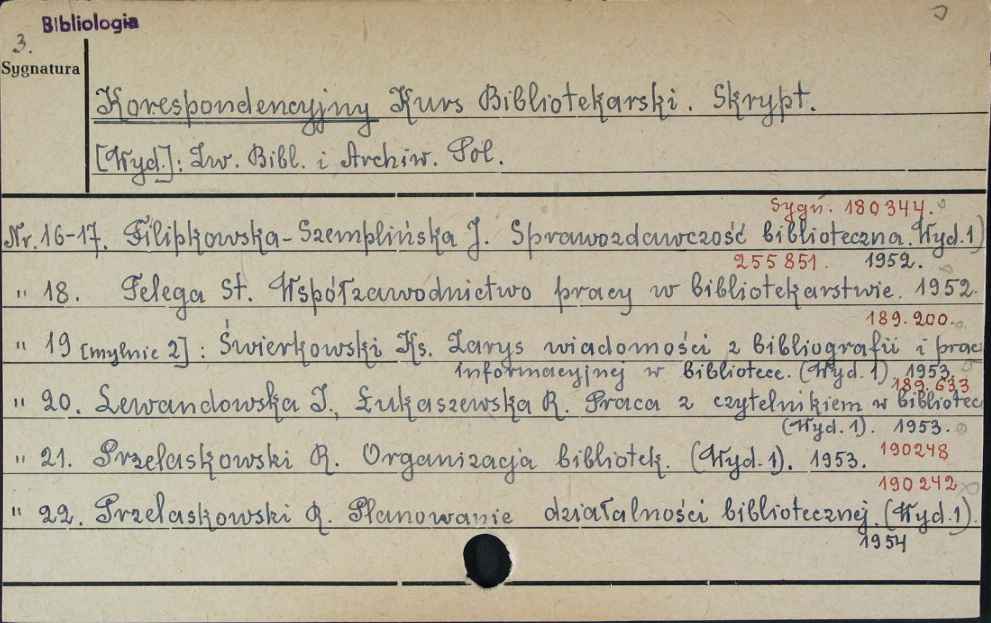 Bibliologia
3.
Sygnatura
Korespondencyjny Kurs Bibliotekarski. Skrypt.
[Wyd.]: Zw. Bibl. i Archiw. Pol.
Sygn. 180344.
Nr. 16-17. Filipkowska-Szemplińska J. Sprawozdawczość biblioteczna. Wyd. 1)
255851. 1952.
" 18. Felega St. Współzawodnictwo pracy w bibliotekarstwie. 1952.
189.200.
" 19 [mylnie 2] : Świerkowski Ks. Zarys wiadomości z bibliografii i prac
informacyjnej w bibliotece. (Wyd. 1) 1953.
189.633
" 20. Lewandowska J., Łukaszewska R. Praca z czytelnikiem w bibliotec
(Wyd. 1). 1953.
" 21. Przelaskowski R. Organizacja bibliotek. (Wyd. 1). 1953. 190248
190242
" 22. Przelaskowski R. Planowanie działalności bibliotecznej. (Wyd. 1).
1954